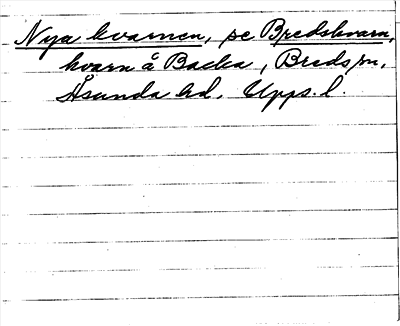 Nya kvarnen, se Bredskvarn,
kvarn å Backa, Breds sn,
Åsunda hd, Upps. l.